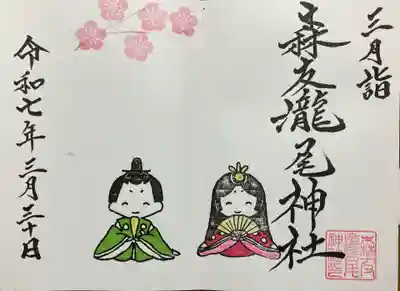 三月詣
森友瀧尾神社
令和七年三月三十日
森友
瀧尾
神社